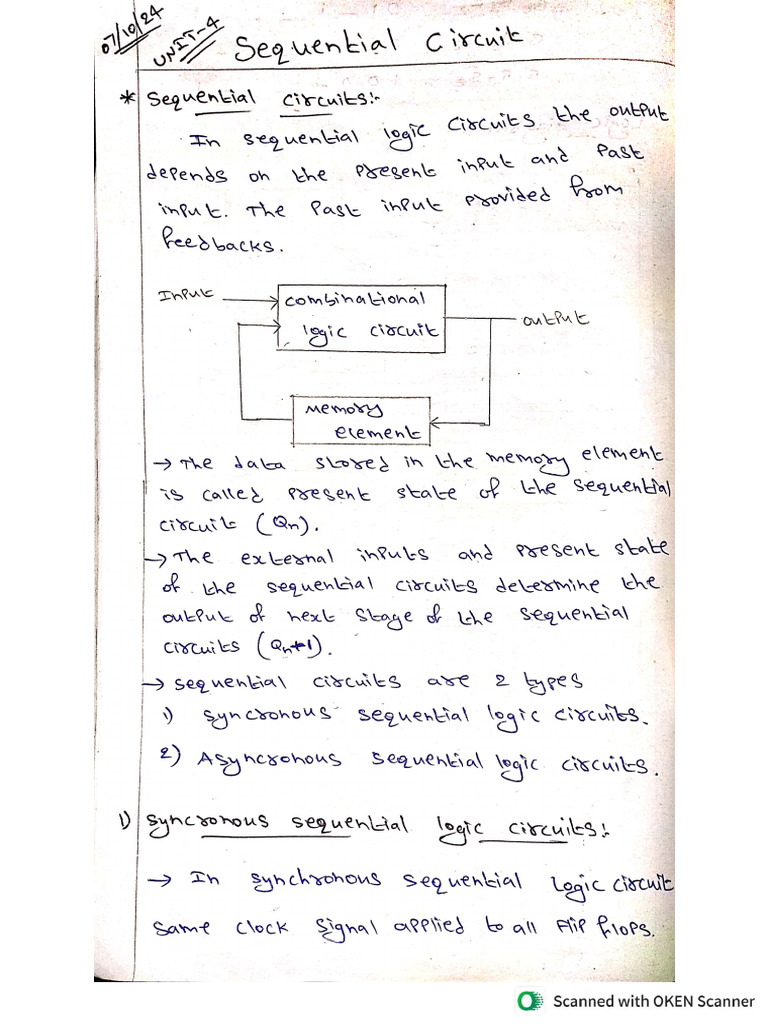 07/10/24
UNIT-4
Sequential Circuit
* Sequential circuits:-
In sequential logic circuits the output
depends on the present input and past
input. The Past input provided from
feedbacks.
Input
combinational
logic circuit
output
memory
element
→ The data stored in the memory element
is called present state of the sequential
circuit (Qn).
→ The external inputs and present state
of the sequential circuits determine the
output of next stage of the sequential
circuits (Qn+1).
→ sequential circuits are 2 types
1) syncronous sequential logic circuits.
2) Asyncronous sequential logic circuits.
1) syncronous sequential logic circuits:-
→ In synchronous sequential logic circuit
same clock signal applied to all flip flops.
Scanned with OKEN Scanner